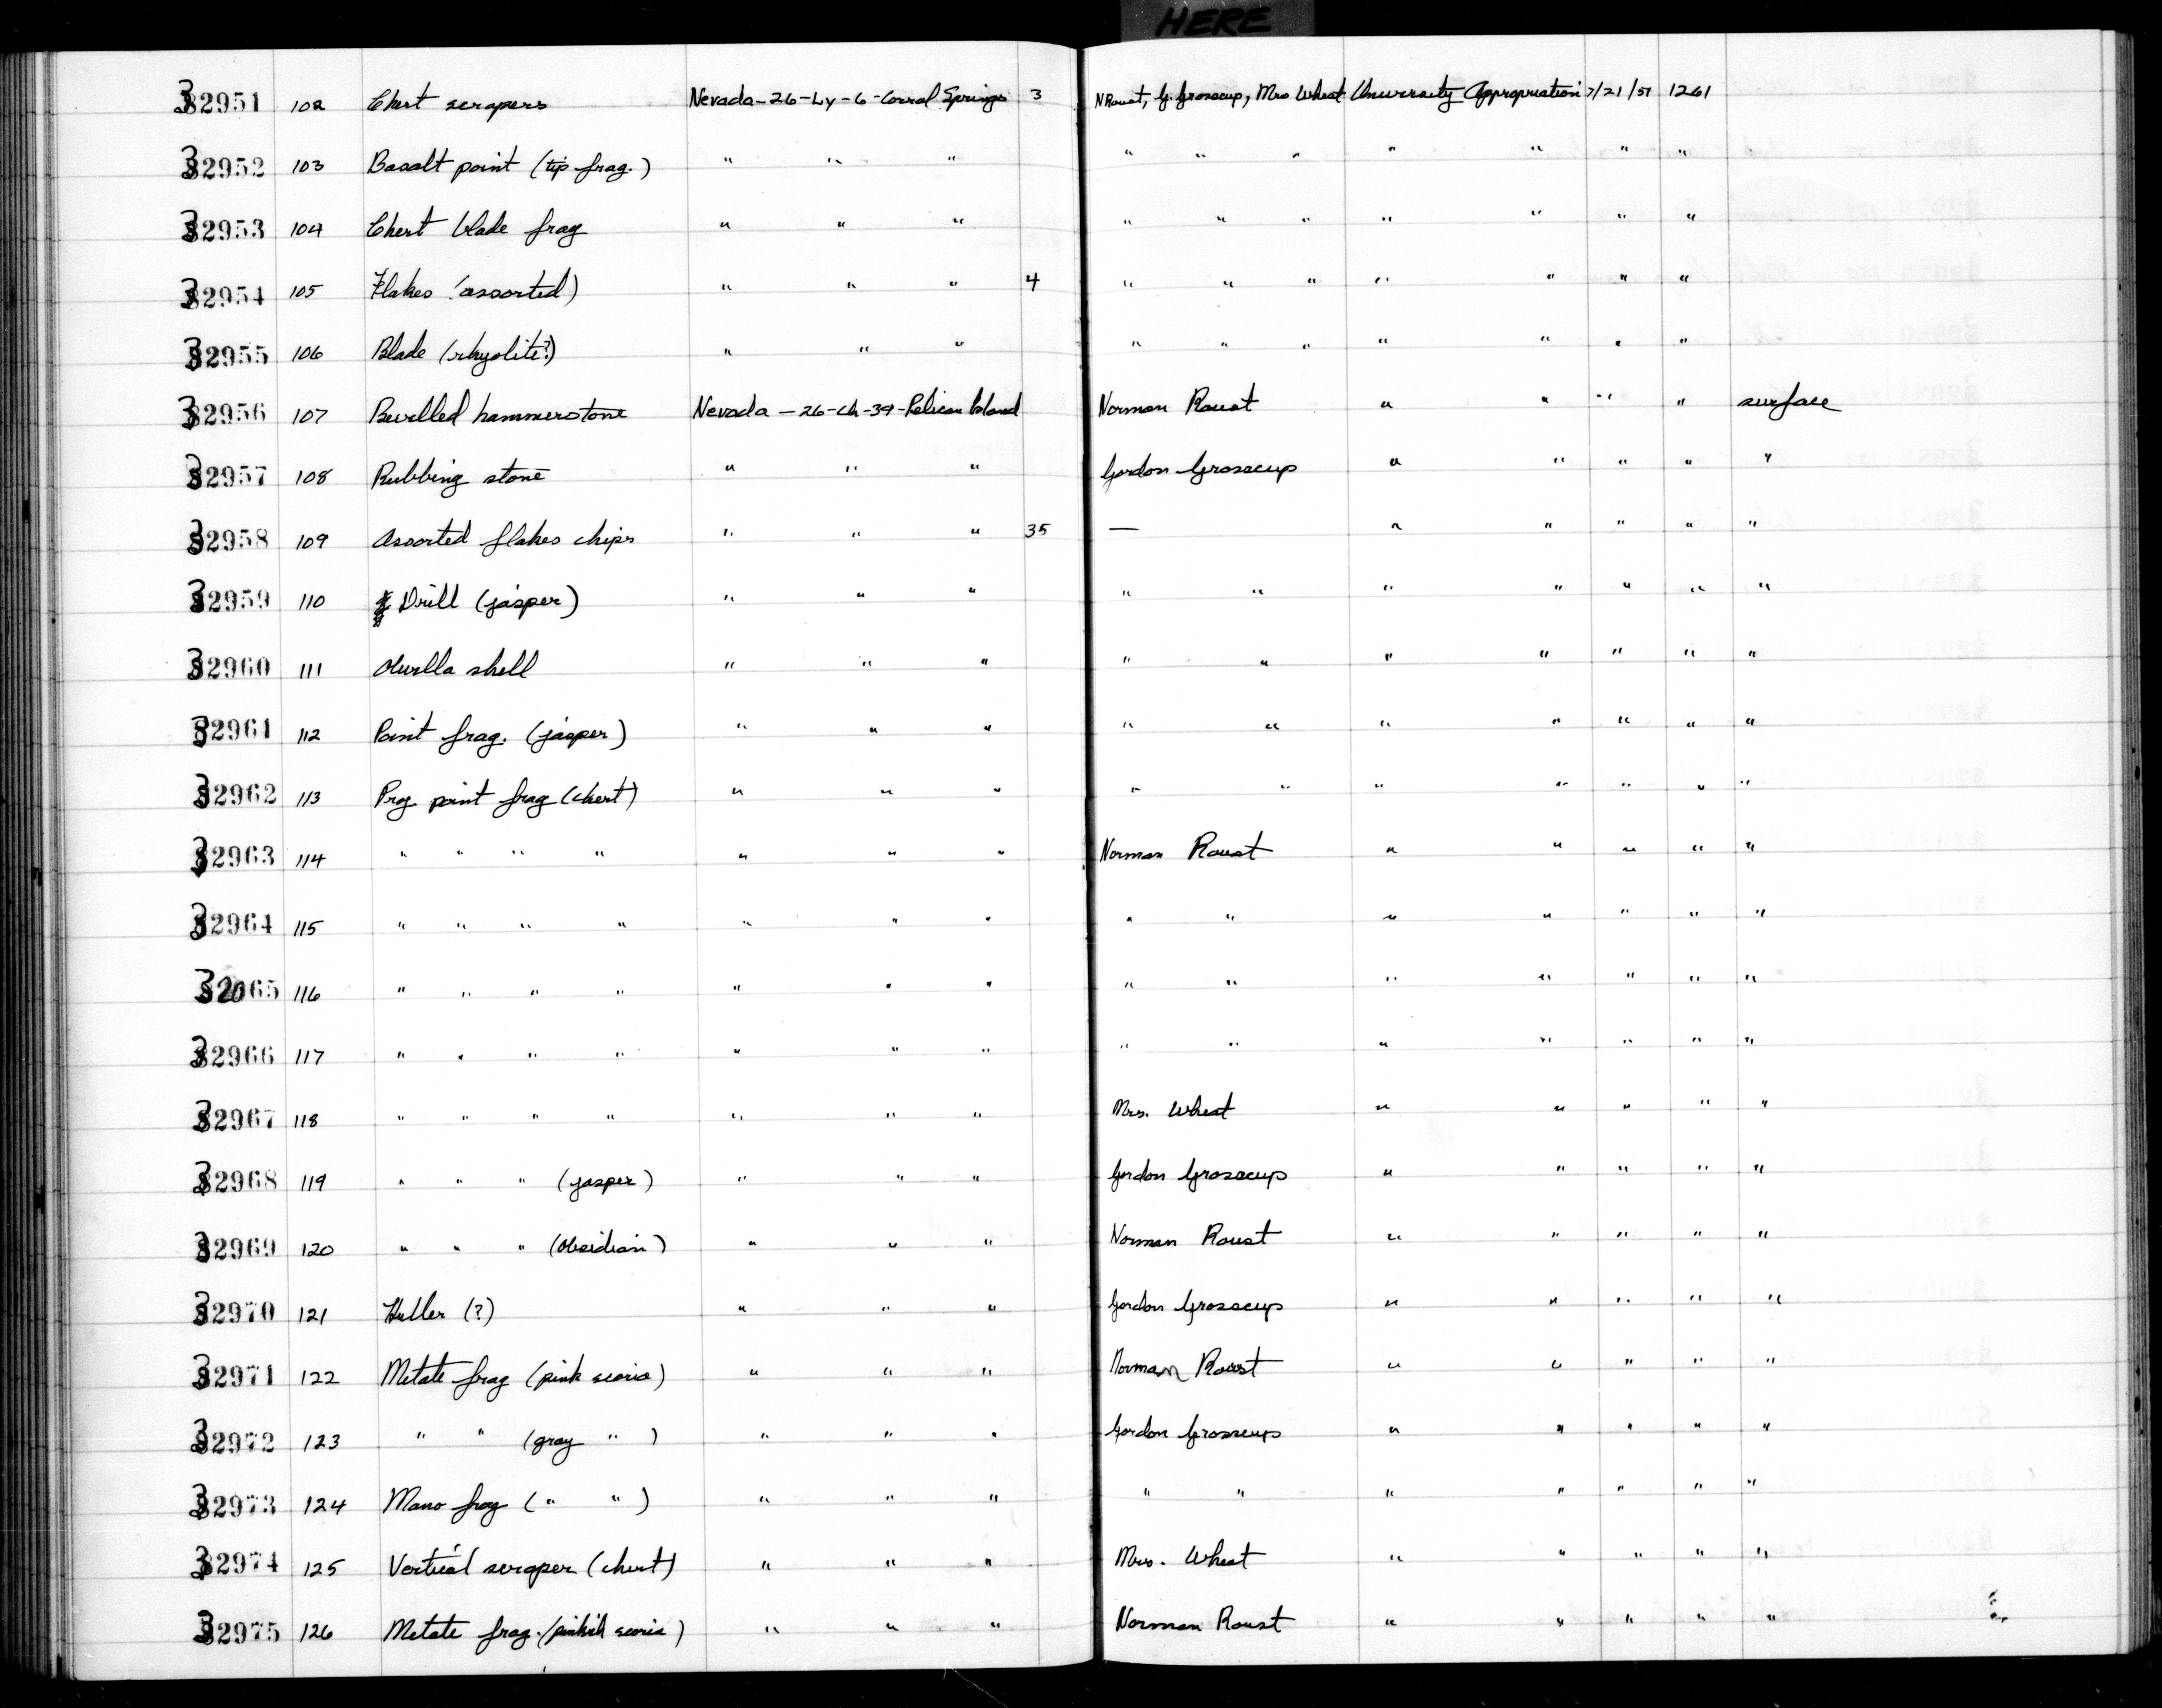 HERE
32951 102 Chert scrapers Nevada-26-Ly-6-Corral Springs 3 N Roust, G. Grosscup, Mrs Wheat University Appropriation 7/21/51 1261
32952 103 Basalt point (tip frag.) " " " " " " " " " "
32953 104 Chert blade frag " " " " " " " " " "
32954 105 Flakes (assorted) " " " 4 " " " " " " "
32955 106 Blade (rhyolite?) " " " " " " " " " "
32956 107 Bevelled hammerstone Nevada - 26-Ch-39-Pelican Island Norman Roust " " " " surface
32957 108 Rubbing stone " " " Gordon Grosscup " " " " "
32958 109 Assorted flakes chips " " " 35 — " " " " "
32959 110 Drill (jasper) " " " " " " " " " "
32960 111 Olivella shell " " " " " " " " " "
32961 112 Point frag. (jasper) " " " " " " " " " "
32962 113 Proj. point frag (chert) " " " " " " " " " "
32963 114 " " " " " " " Norman Roust " " " " "
32964 115 " " " " " " " " " " " " " "
32965 116 " " " " " " " " " " " " " "
32966 117 " " " " " " " " " " " " " "
32967 118 " " " " " " " Mrs. Wheat " " " " "
32968 119 " " " (jasper) " " " Gordon Grosscup " " " " "
32969 120 " " " (Obsidian) " " " Norman Roust " " " " "
32970 121 Huller (?) " " " Gordon Grosscup " " " " "
32971 122 Metate frag (pink scoria) " " " Norman Roust " " " " "
32972 123 " " (gray " ) " " " Gordon Grosscup " " " " "
32973 124 Mano frag ( " " ) " " " " " " " " " "
32974 125 Vertical scraper (chert) " " " Mrs. Wheat " " " " "
32975 126 Metate frag. (pinkish scoria) " " " Norman Roust " " " " "